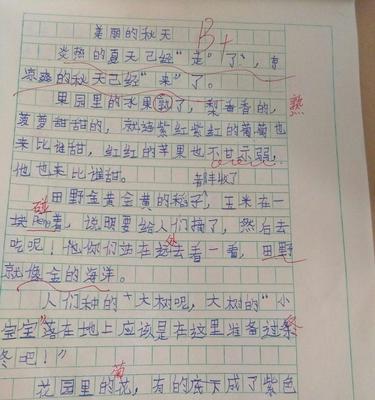 美丽的秋天
B+
炎热的夏天已经"走"了，
凉爽的秋天已经"来"了。
果园里的水果熟了，梨香香的，
熟
菠萝甜甜的，就连紫红紫红的葡萄也
来比谁甜，红红的苹果也不甘示弱，
他也来比谁甜。
都丰收了
田野金黄金黄的稻子，玉米在一
碰
块着，说明要给人们摘了，然后去
吃呢！你们站在远去看一看，田野
处
就像金的海洋。
人们种的大树呢，大树的"小
宝宝"落在地上应该是在这里准备过
冬
冬吧！"
花园里的花，有的底下成了紫色